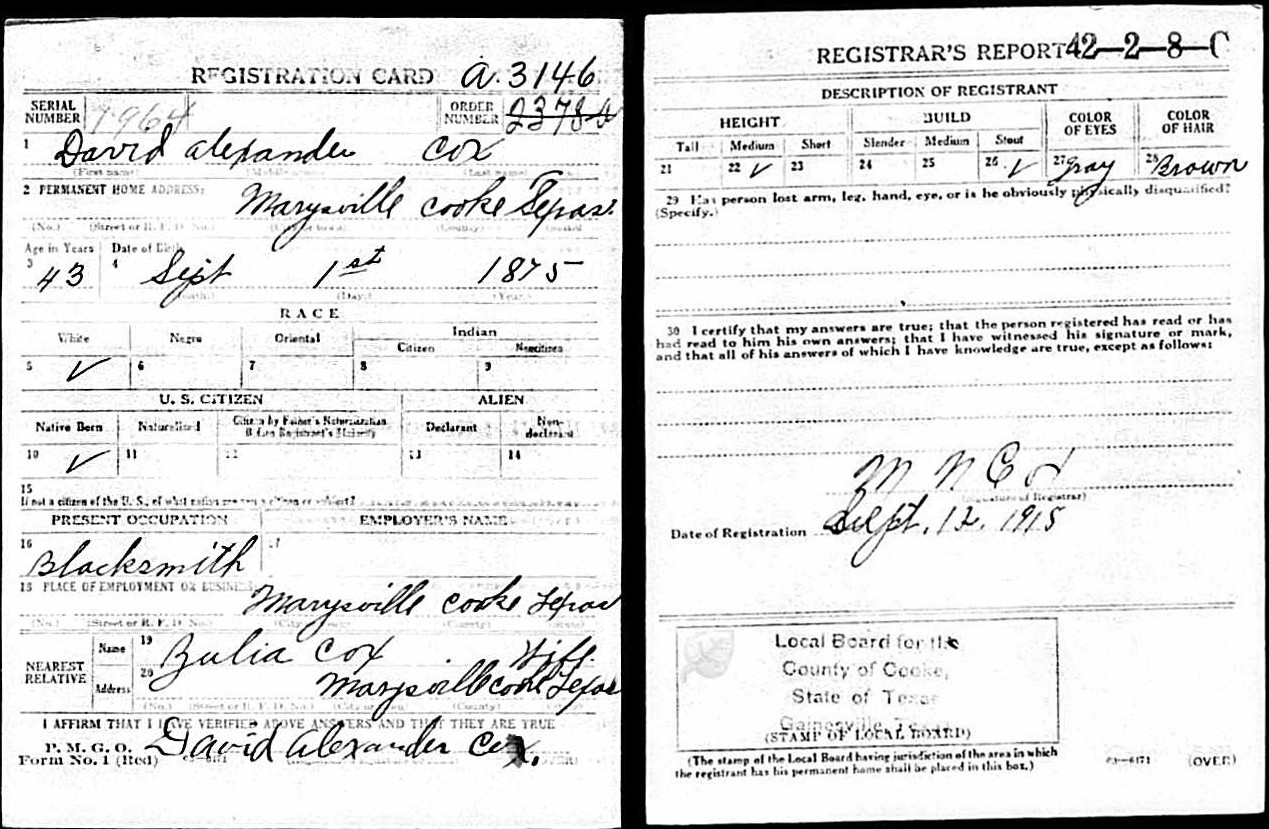 REGISTRATION CARD A 3146
SERIAL NUMBER 7964 ORDER NUMBER
1 David Alexander Cox
(First name) (Middle name) (Last name)
2 PERMANENT HOME ADDRESS:
Marysville Cooke Texas.
(No.) (Street or R. F. D. No.) (City or town) (County) (State)
Age in Years Date of Birth
3 43 4 Sept 1st 1875
(Month) (Day) (Year)
RACE
White Negro Oriental Indian
Citizen Noncitizen
5 ✓ 6 7 8 9
U. S. CITIZEN ALIEN
Native Born Naturalized Citizen by Father's Naturalization Before Registrant's Majority Declarant Non-declarant
10 ✓ 11 12 13 14
15
If not a citizen of the U. S., of what nation are you a citizen or subject?
PRESENT OCCUPATION EMPLOYER'S NAME
16 Blacksmith 17
18 PLACE OF EMPLOYMENT OR BUSINESS:
Marysville Cooke Texas
(No.) (Street or R. F. D. No.) (City or town) (County) (State)
NEAREST RELATIVE Name 19 Zulia Cox Wife.
Address 20 Marysville Cooke Texas
(No.) (Street or R. F. D. No.) (City or town) (County) (State)
I AFFIRM THAT I HAVE VERIFIED ABOVE ANSWERS AND THAT THEY ARE TRUE
P. M. G. O.
Form No. 1 (Red) David Alexander Cox. (OVER)
REGISTRAR'S REPORT 42-2-8-C
DESCRIPTION OF REGISTRANT
HEIGHT BUILD COLOR OF EYES COLOR OF HAIR
Tall Medium Short Slender Medium Stout
21 22 ✓ 23 24 25 26 ✓ 27 Gray 28 Brown
29 Has person lost arm, leg, hand, eye, or is he obviously physically disqualified?
(Specify.)
30 I certify that my answers are true; that the person registered has read or has
had read to him his own answers; that I have witnessed his signature or mark,
and that all of his answers of which I have knowledge are true, except as follows:
M N Cox
(Signature of Registrar)
Date of Registration Sept. 12. 1918
Local Board for the
County of Cooke,
State of Texas
Gainesville, Texas
(STAMP OF LOCAL BOARD)
(The stamp of the Local Board having jurisdiction of the area in which
the registrant has his permanent home shall be placed in this box.)
03—6171 (OVER)